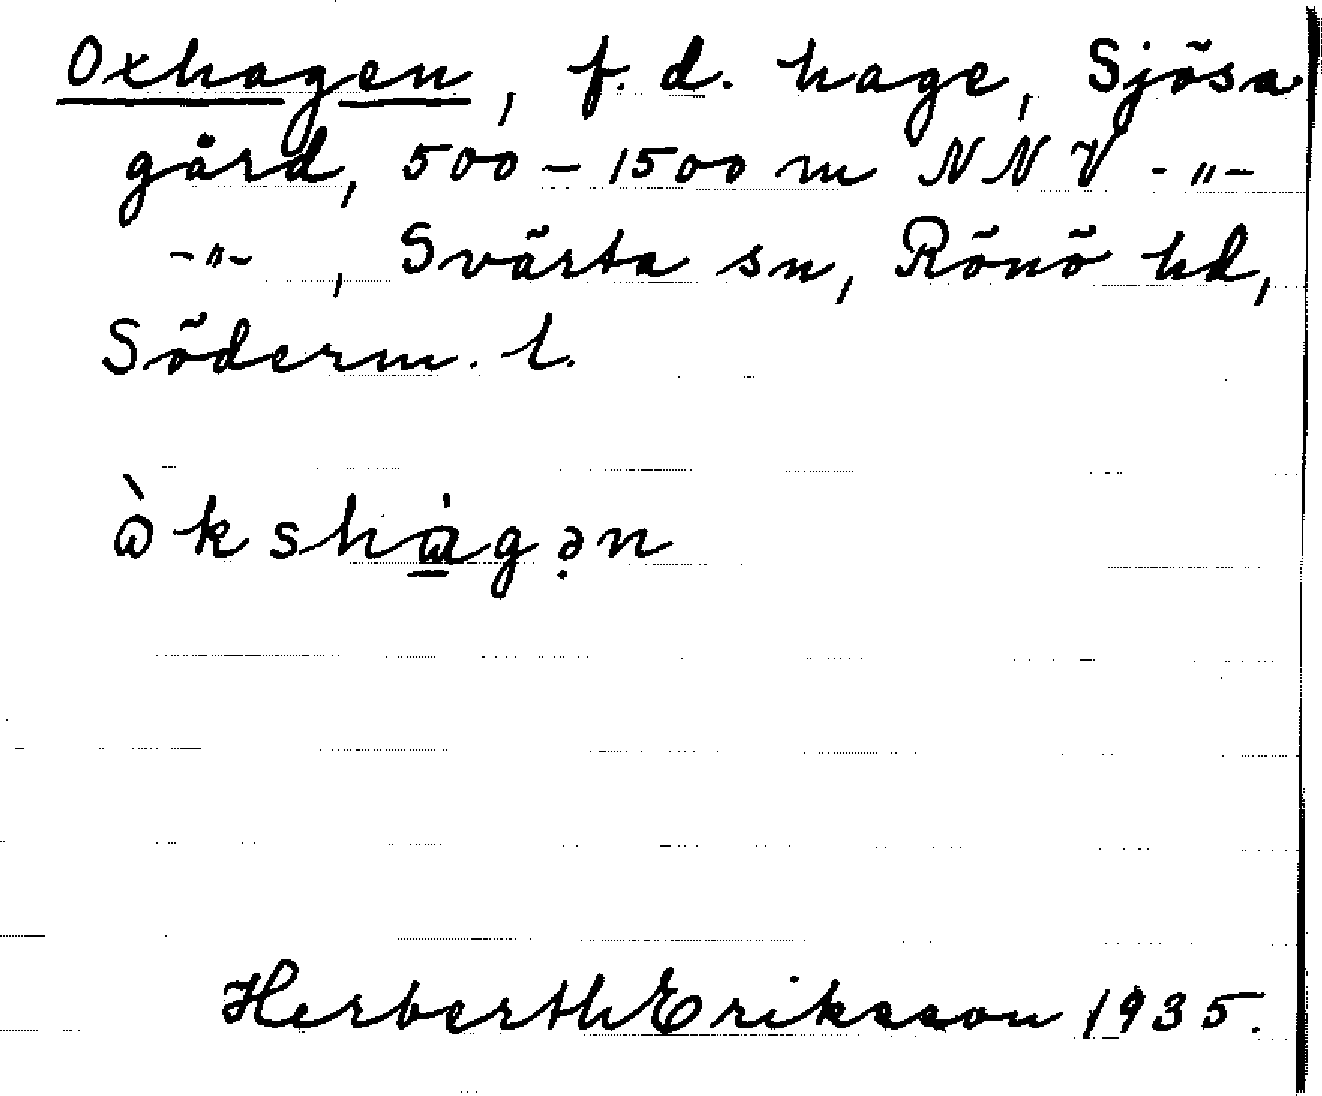 Oxhagen, f. d. hage, Sjösa
gård, 500-1500 m NNV -"-
-"-, Svärta sn, Rönö hd,
Söderm. l.
ὼkshα̇gə̣n
Herberth Eriksson 1935.